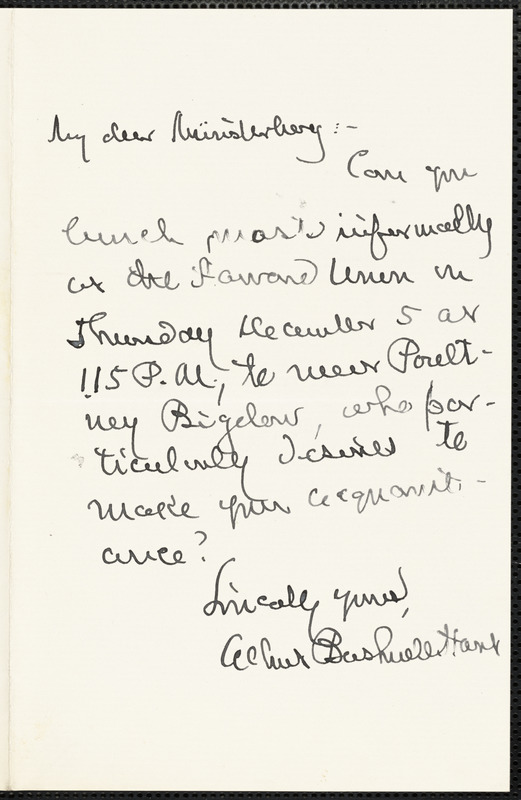 My dear Münsterberg:-
Can you
lunch most informally
at the Harvard Union on
Thursday December 5 at
1.15 P.M., to meet Poult-
ney Bigelow, who par-
ticularly desires to
make your acquaint-
ance?
Sincerely yours,
Albert Bushnell Hart